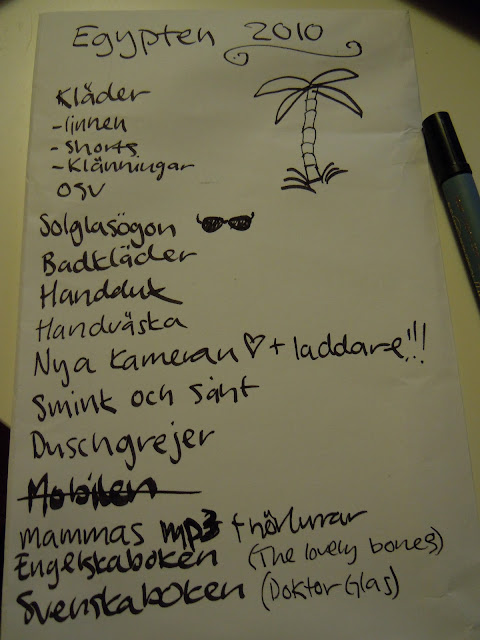 Egypten 2010
Kläder
- linnen
- shorts
- Klänningar
OSV
Solglasögon
Badkläder
Handduk
Handväska
Nya Kameran ♡ + laddare!!!
Smink och sånt
Duschgrejer
Mobilen
mammas mp3 + hörlurar
Engelskaboken (The lovely bones)
Svenskaboken (Doktor Glas)